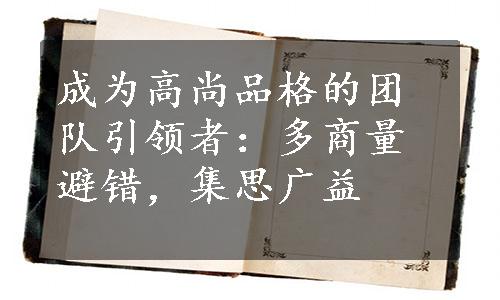 成为高尚品格的团
队引领者：多商量
避错，集思广益